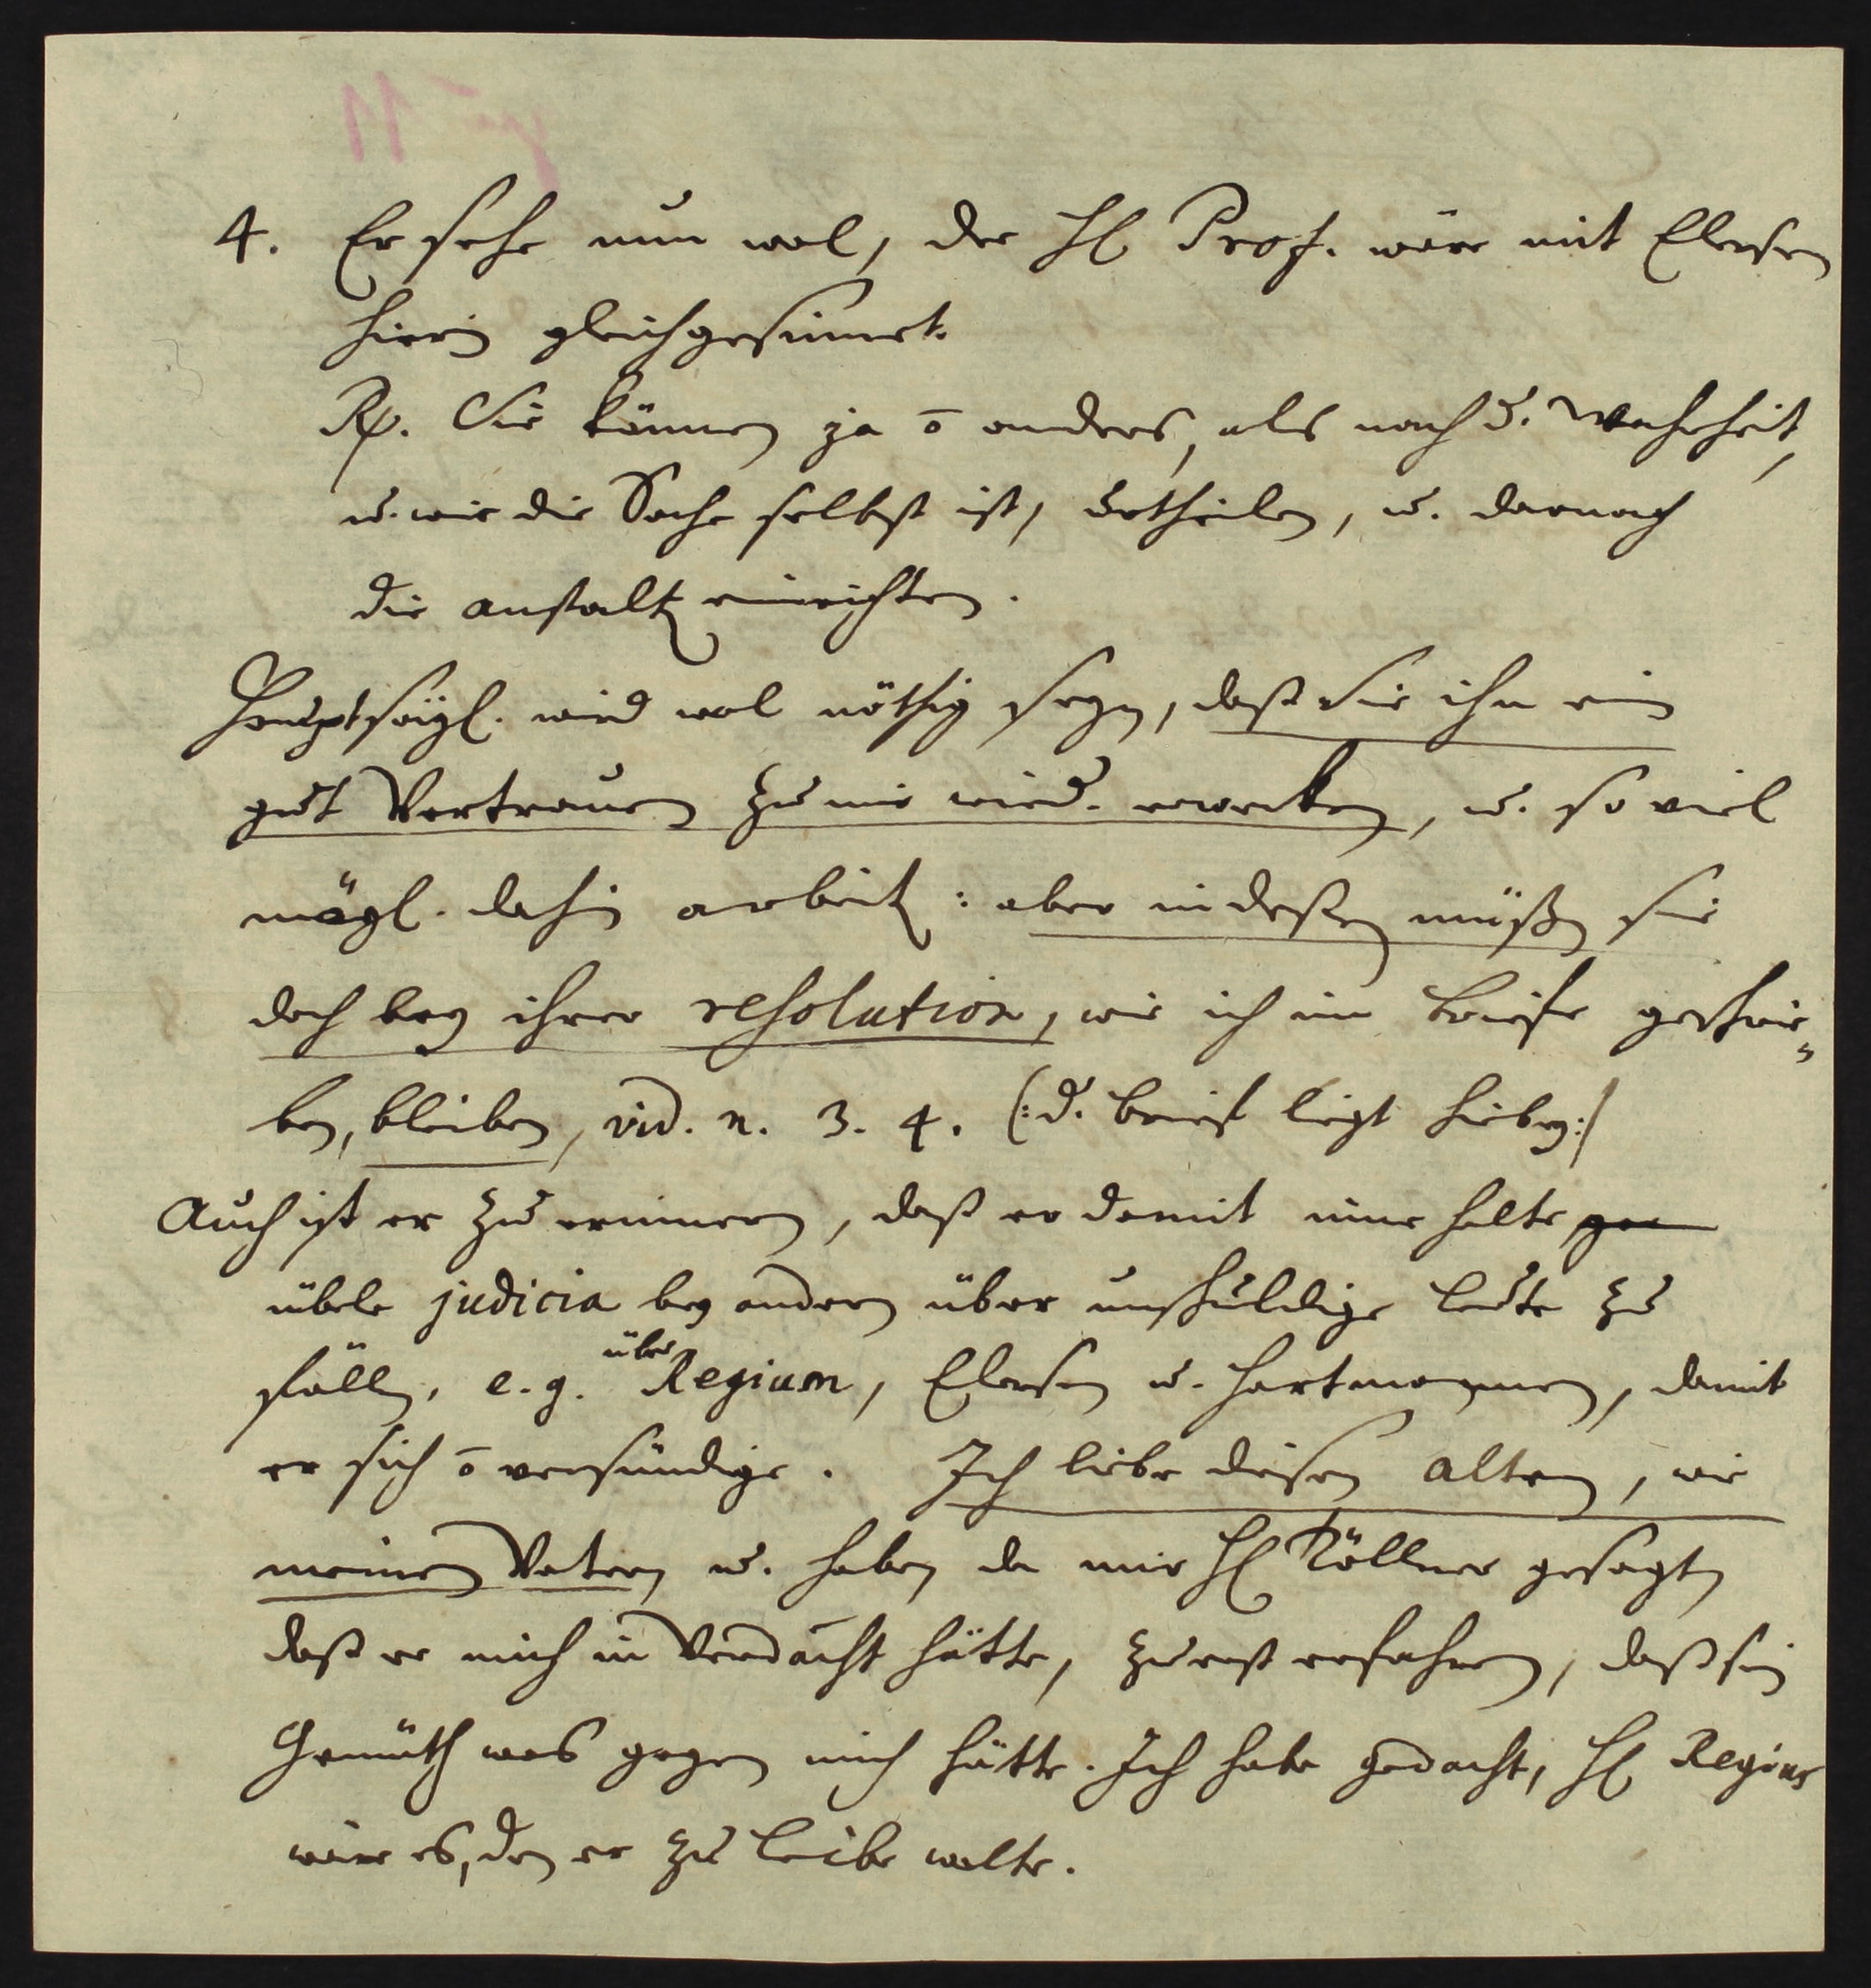 4. Er sehe nun wol, der H Prof. wäre mit Elersen
hierin gleichgesinnet.
Rp. Sie können ja õ anders, als nach d. Wahrheit,
u. wie die Sache selbst ist, urtheilen, u. darnach
die anstalt einrichten.
Hauptsächl. wird wol nöthig seyn, daß Sie ihn ein
gut Vertrauen zu mir wied. erwecken, u. so viel
mögl. dahin arbeit: aber indeßen müßen sie
doch bey ihrer resolution, wie ich im briefe geschrie=
ben, bleiben, vid. n. 3. 4. (:d. brief ligt hiebey:)
Auch ist er zu erinnern, daß er damit inne halte
übele judicia bey andern über unschuldige leute zu
fällen, e. g. über Regium, Elersen u. Hartmannen, damit
er sich õ versündige. Ich liebe diesen alten, wie
meinen Vatern, u. haben da mir H Töllner gesagt,
daß er mich in Verdacht hätte, zu erst erfahren, daß sein
Gemüth was gegen mich hätte. Ich habe gedacht, H Regius
wäre es, den er zu leibe wolte.